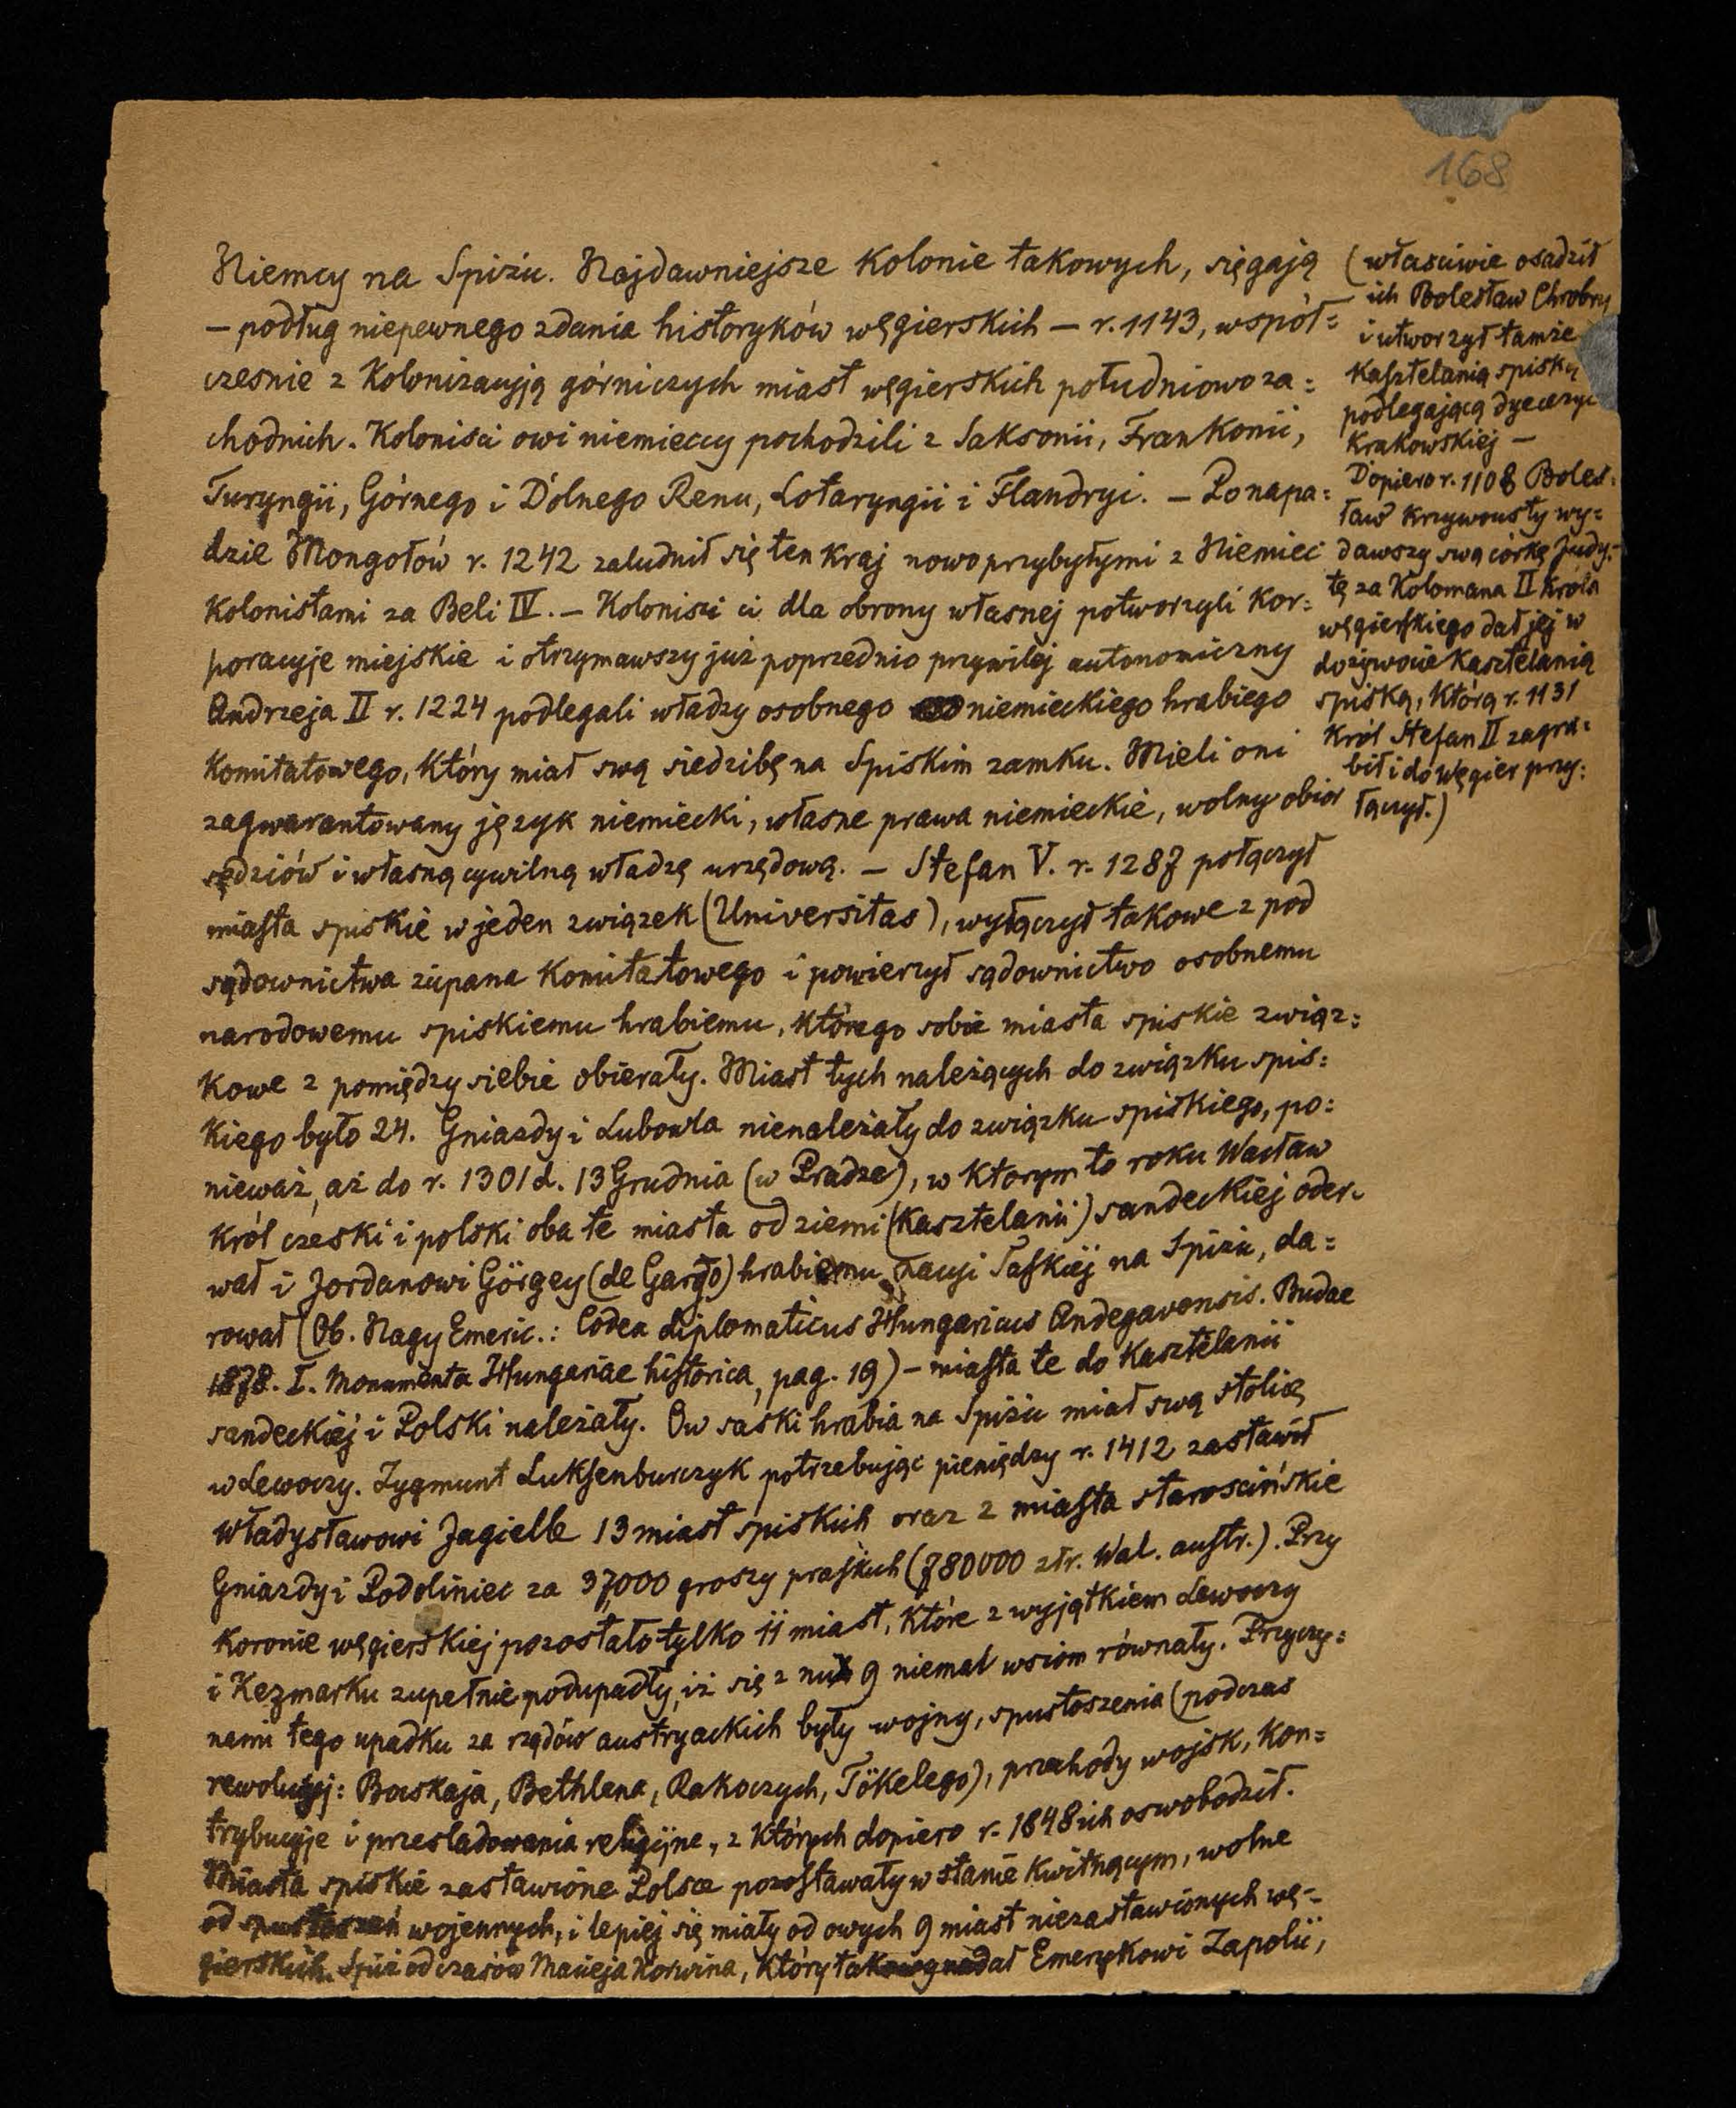 168
Niemcy na Spiżu. Najdawniejsze kolonie takowych, sięgają
— podług niepewnego zdania historyków węgierskich — r. 1143, współ=
cześnie z kolonizacyją górniczych miast węgierskich południowoza=
chodnich. Koloniści owi niemieccy pochodzili z Saksonii, Frankonii,
Turyngii, Górnego i Dolnego Renu, Lotaryngii i Flandryi. — Po napa=
dzie Mongołów r. 1242 zaludnił się ten kraj nowoprzybyłymi z Niemiec
kolonistami za Beli IV. — Koloniści ci dla obrony własnej potworzyli kor=
poracyje miejskie i otrzymawszy już poprzednio przywilej autonomiczny
Andrzeja II r. 1224 podlegali władzy osobnego niemieckiego hrabiego
komitatowego, który miał swą siedzibę na Spiskim zamku. Mieli oni
zagwarantowany język niemiecki, własne prawa niemieckie, wolny obiór
sędziów i własną cywilną władzę urzędową. — Stefan V. r. 1287 połączył
miasta spiskie w jeden związek (Universitas), wyłączył takowe z pod
sądownictwa żupana komitatowego i powierzył sądownictwo osobnemu
narodowemu spiskiemu hrabiemu, którego sobie miasta spiskie związ=
kowe z pomiędzy siebie obierały. Miast tych należących do związku spis=
kiego było 24. Gniazdy i Lubowla nienależały do związku spiskiego, po=
nieważ, aż do r. 1301 d. 13 Grudnia (w Pradze), w którym to roku Wacław
król czeski i polski oba te miasta od ziemi (kasztelanii) sandeckiej oder=
wał i Jordanowi Görgey (de Gargo) hrabiemu na Spiżu, da=
rował (Ob. Nagy Emeric.: Codex diplomaticus Hungaricus Andegavensis. Budae
1878. I. Monumenta Hungariae historica, pag. 19) — miasta te do kasztelanii
sandeckiej i Polski należały. Ów saski hrabia na Spiżu miał swą stolicę
w Lewoczy. Zygmunt Luksenburczyk potrzebując pieniędzy r. 1412 zastawił
Władysławowi Jagielle 13 miast spiskich oraz 2 miasta starościńskie
Gniazdy i Podoliniec za 37,000 groszy praskich (780000 złr. Wal. austr.). Przy
koronie węgierskiej pozostało tylko 11 miast, które z wyjątkiem Lewoczy
i Kezmarku zupełnie podupadły, iż się z nich 9 niemal wsiom równały. Przyczy=
nami tego upadku za rządów austryackich były wojny, spustoszenia (podczas
rewolucyj: Bocskaja, Bethlena, Rakoczych, Tökelego), przechody wojsk, kon=
trybucyje i prześladowania religijne, z których dopiero r. 1848 ich oswobodził.
Miasta spiskie zastawione Polsce pozostawały w stanie kwitnącym, wolne
od spustoszeń wojennych, i lepiej się miały od owych 9 miast niezastawionych wę=
gierskich. Spiż od czasów Macieja Korwina, który takowy nadał Emerykowi Zapolii,
(właściwie osadził
ich Bolesław Chrobry
i utworzył tamże
kasztelanią spiską
podlegającą dyecezyi
krakowskiej —
Dopiero r. 1108 Boles=
ław Krzywousty wy=
dawszy swą córkę Judy=
tę za Kolomana II króla
węgierskiego dał jej w
dożywocie kasztelanią
spiską, którą r. 1131
król Stefan II zagra=
bił i do Węgier przy=
łączył.)